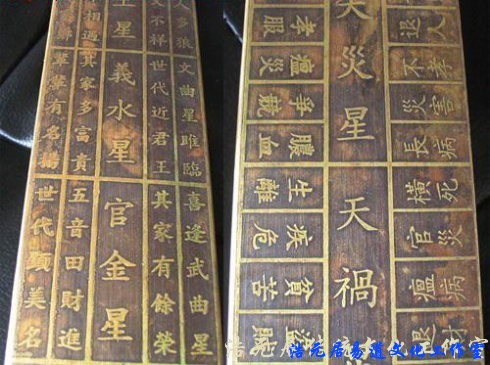 人多狼
文曲星雎臨
喜逢武曲星
文不祥
世代近君王
其家有餘榮
星
義水星
官金星
相遇
其家多富貴
五音田財進
輩輩有名揚
世代項美名
退人
不孝
災害
長病
橫死
官災
瘟病
退財
天災星
天禍
孝服
瘟災
爭競
膿血
生離
疾危
貧苦
浩元居易道文化工作室